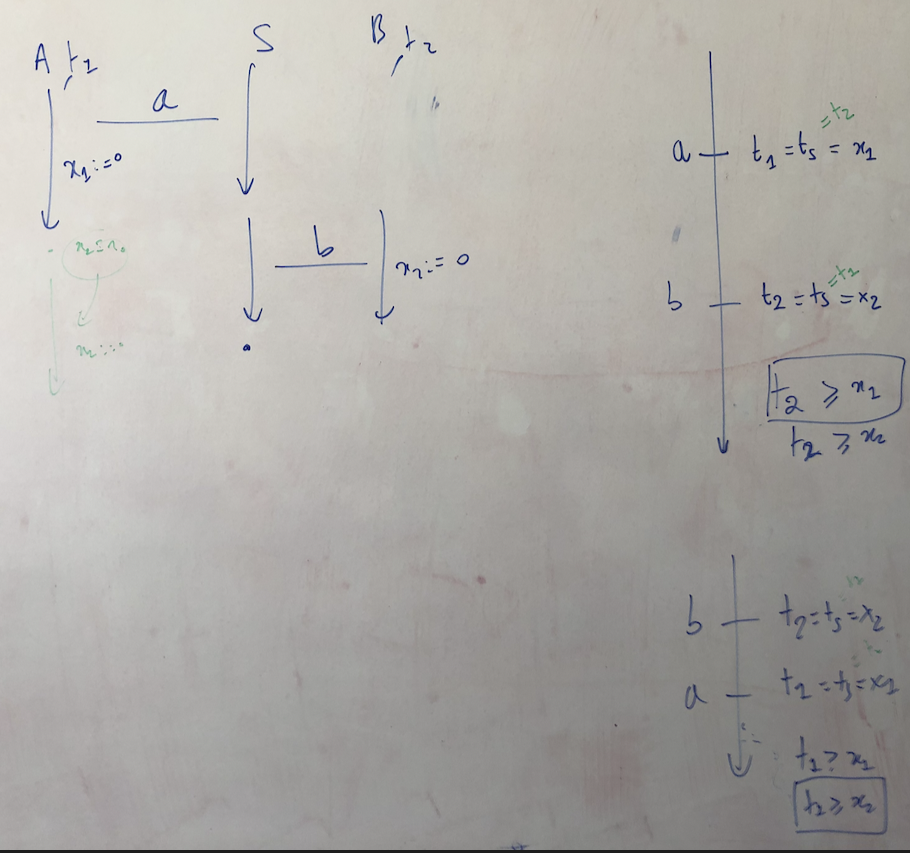 A, t₁
S
B, t₂
a
x₁ := 0
b
x₂ := 0
a t₁ = t_s = x₁
= t₂
b t₂ = t_s = x₂
t₂ ⩾ x₁
t₂ ⩾ x₂
b t₂ = t_s = x₂
a t₁ = t_s = x₁
t₁ ⩾ x₁
t₂ ⩾ x₂